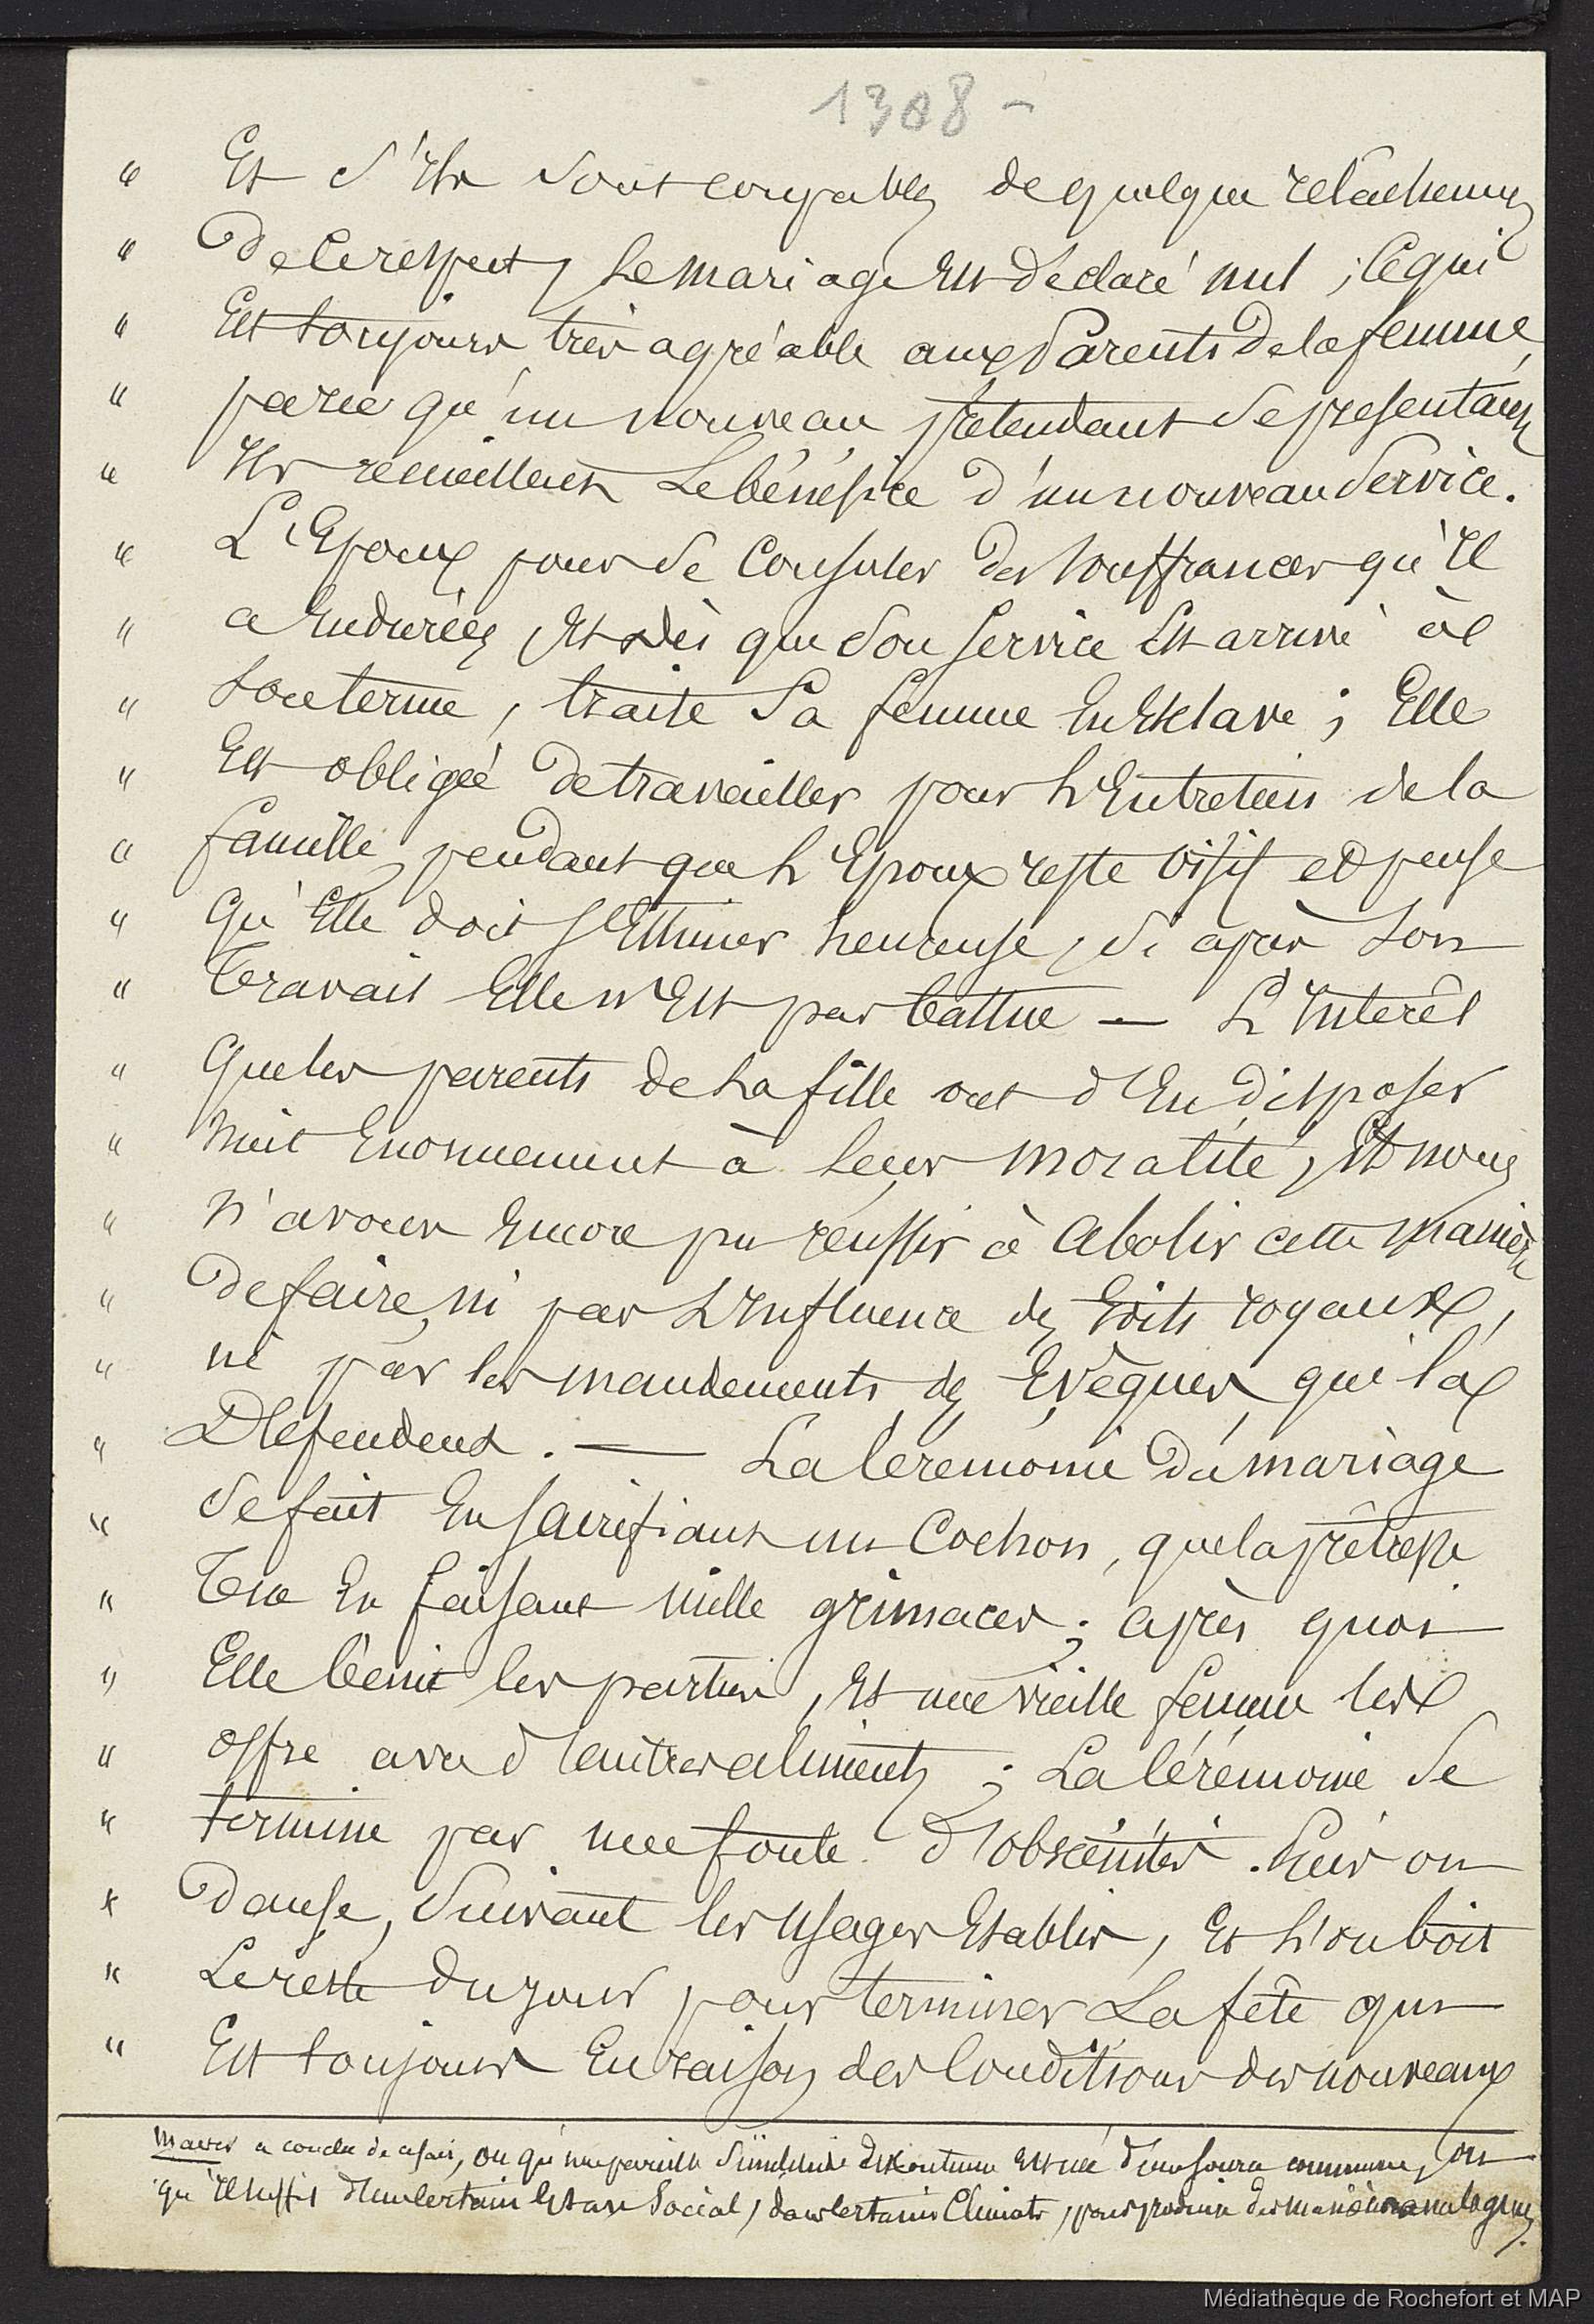 1308 -
" Et s'Ils sont coupables de quelque relâchement
" De ce respect, le mariage Est déclaré nul ; Ce qui
" Est toujours très agréable aux Parents De la femme,
" parce qu'un nouveau prétendant se présentant,
" Ils recueillent Le bénéfice d'un nouveau Service.
" L'Epoux pour se Consoler Des souffrances qu'Il
" a Endurées, Et Dès que son service Est arrivé à
" son terme, traite Sa femme En Esclave ; Elle
" Est obligée De travailler pour L'Entretien de la
" famille, pendant que L'Epoux reste oisif et pense
" Qu'Elle doit s'Estimer heureuse, si après son
" Travail Elle n'Est pas battue — L'Intérêt
" Que les parents de La fille ont d'En disposer
" Nuit Enormément à leur moralité, Et nous
" N'avons Encore pu réussir à Abolir cette manière
" De faire, ni par L'Influence des Edits royaux,
" ni par les mandements des Evèques qui la
" Défendent. — La Cérémonie Du mariage
" Se fait En sacrifiant un Cochon, que la prêtresse
" Tue En faisant mille grimaces ; après quoi
" Elle bénit les parties, Et une vieille femme les
" offre avec d'autres aliments ; La Cérémonie se
" termine par une foule d'obscénités. Puis on
" Danse, Suivant les Usages Etablis, Et L'on boit
" Le reste Du jour pour terminer La fête qui
" Est toujours En raison des Conditions des nouveaux
a conclu de cefait, ou qu'une pareille Similitude de Coutume Est née d'une source commune, ou
qu'Il suffit d'un Certain Etat Social, dans Certains Climats, pour produire des manières analogues.
Médiathèque de Rochefort et MAP